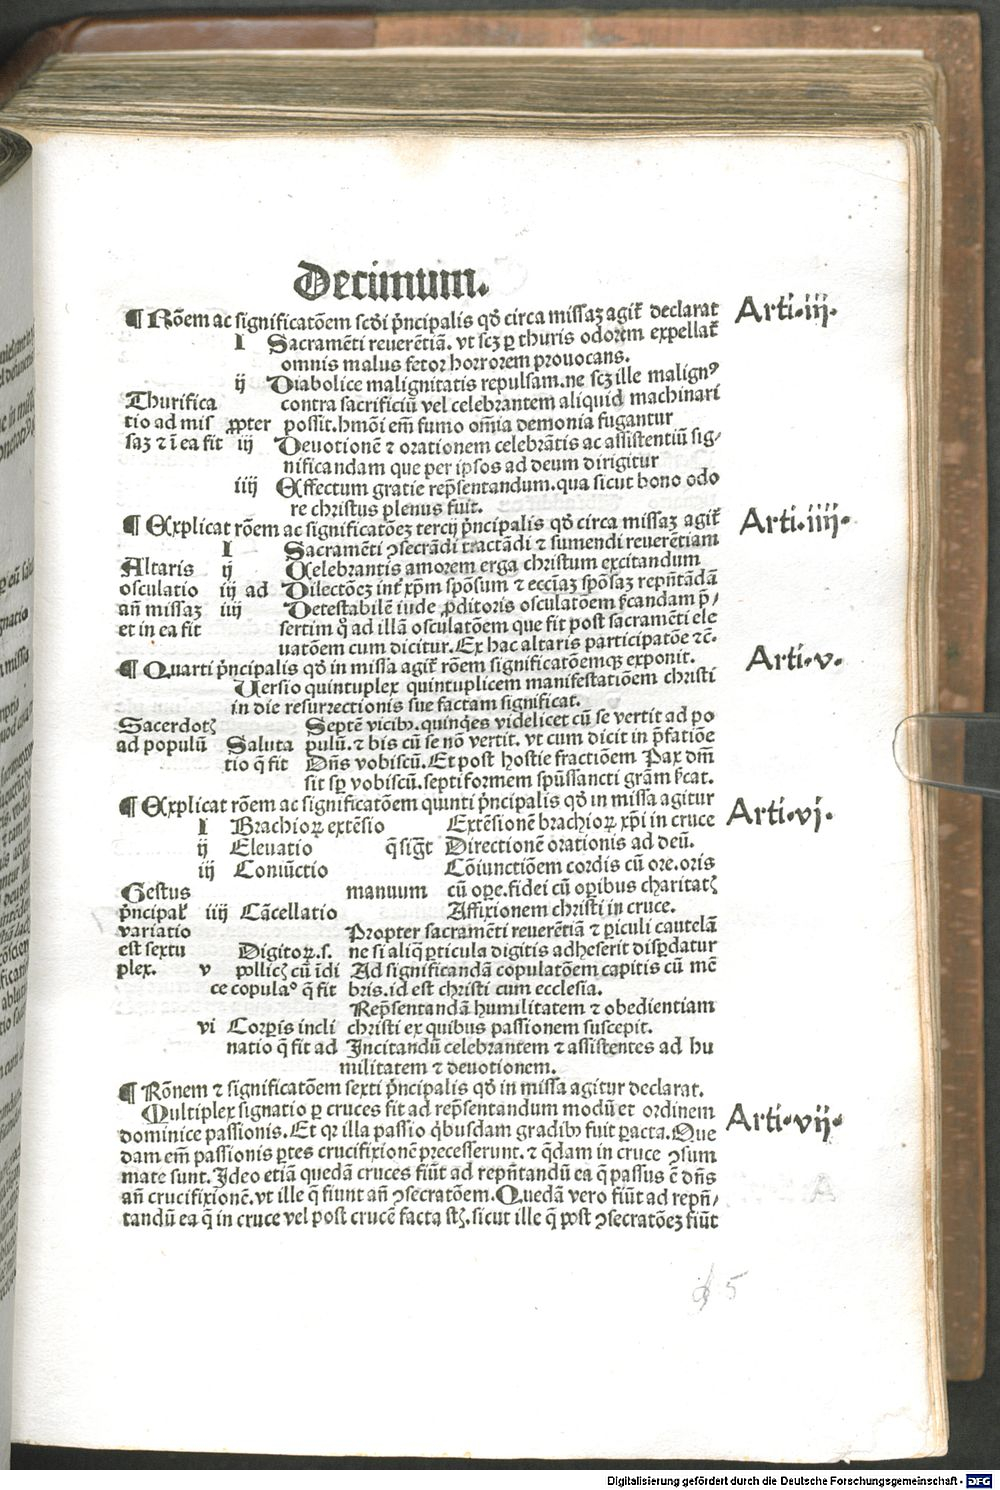 Decimum.
¶ Rõem ac significatõem scďi p̃ncipalis qď circa missaꝫ agiť declarat
Arti·iij·
I Sacramẽti reuerẽtiã. vt scꝫ ꝑ thuris odorem expellať
omnis malus fetor horrorem prouocans.
ij Diabolice malignitatis repulsam. ne scꝫ ille malignꝰ
Thurifica contra sacrificiũ vel celebrantem aliquid machinari
tio ad mis ꝓpter possit. hmõi em̃ fumo om̃ia demonia fugantur
saꝫ ⁊ ĩ ea fit iij Deuotionẽ ⁊ orationem celebrãtis ac assistentiũ sig-
nificandam que per ipsos ad deum dirigitur
iiij Effectum gratie rep̃sentandum. qua sicut bono odo
re christus plenus fuit.
¶ Explicat rõem ac significatõeꝫ tercij p̃ncipalis qď circa missaꝫ agiť
Arti·iiij·
I Sacramẽti ꝯsecrãdi tractãdi ⁊ sumendi reuerẽtiam
Altaris ij Celebrantis amorem erga christum excitandum
osculatio iij ad Dilectõeꝫ int̾ xp̃m spõsum ⁊ ecc̃iaꝫ spõsaꝫ repñtãdã
añ missaꝫ iiij Detestabilẽ iude ꝓditoris osculatõem ẜcandam p̃/
et in ea fit sertim q̊ ad illã osculatõem que fit post sacramẽti ele
uatõem cum dicitur. Ex hac altaris participatõe ⁊c̃.
¶ Quarti p̃ncipalis qď in missa agiť rõem significatõemqꝫ exponit.
Arti·v·
Uersio quintuplex quintuplicem manifestatiõem christi
in die resurrectionis sue factam significat.
Sacerdotꝭ Septẽ vicibꝰ. quinq̃es videlicet cũ se vertit ad po
ad populũ Saluta pulũ. ⁊ bis cũ se nõ vertit. vt cum dicit in p̃fatiõe
tio q̃ fit Dñs vobiscũ. Et post hostie fractiõem Pax dm̃
sit sꝑ vobiscũ. septiformem spũssancti grãm ẜcat.
¶ Explicat rõem ac significatõem quinti p̃ncipalis qď in missa agitur
Arti·vj·
I Brachioꝝ extẽsio Extẽsionẽ brachioꝝ xp̃i in cruce
ij Eleuatio q̃ sigt̃ Directionẽ orationis ad deũ.
iij Coniũctio Cõiunctiõem cordis cũ ore. oris
Gestus manuum cũ oꝑe. fidei cũ oꝑibus charitatꝭ
p̃ncipaľ iiij Cãcellatio Affixionem christi in cruce.
variatio Propter sacramẽti reuerẽtiã ⁊ ꝑiculi cautelã
est sextu Digitoꝝ. s. ne si aliq̃ ꝑticula digitis adheserit disꝑdatur
plex. v pollicꝭ cũ ĩdi Ad significandã copulatõem capitis cũ mẽ
ce copulaᵒ q̃ fit bris. id est christi cum ecclesia.
Rep̃sentandã humilitatem ⁊ obedientiam
vi Corꝑis incli christi ex quibus passionem suscepit.
natio q̃ fit ad Incitandũ celebrantem ⁊ assistentes ad hu
militatem ⁊ deuotionem.
¶ Rõnem ⁊ significatõem sexti p̃ncipalis qď in missa agitur declarat.
Multiplex signatio ꝑ cruces fit ad rep̃sentandum modũ et ordinem
Arti·vij·
dominice passionis. Et qꝛ illa passio q̇busdam gradibꝰ fuit ꝑacta. Que
dam em̃ passionis ꝑtes crucifixionẽ precesserunt. ⁊ q̃dam in cruce ꝯsum
mate sunt. Ideo etiã quedã cruces fiũt ad repñtandũ ea q̃ passus ẽ dñs
añ crucifixionẽ. vt ille q̃ fiunt añ ꝯsecratõem. Quedã vero fiũt ad repñ/
tandũ ea q̃ in cruce vel post crucẽ facta st̃. sicut ille q̃ post ꝯsecratõeꝫ fiũt
5
Digitalisierung gefördert durch die Deutsche Forschungsgemeinschaft - DFG